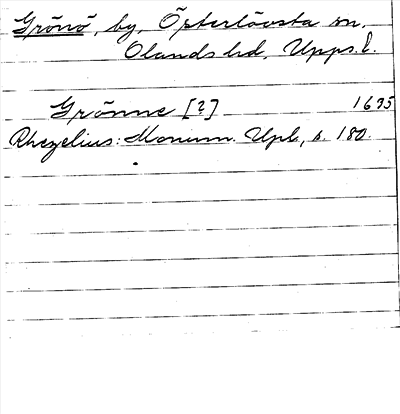 Grönö, by, Österlövsta sn,
Olands hd, Upps. l.
Grönne [?] 1695
Rhezelius: Monum. Upl., s. 180.